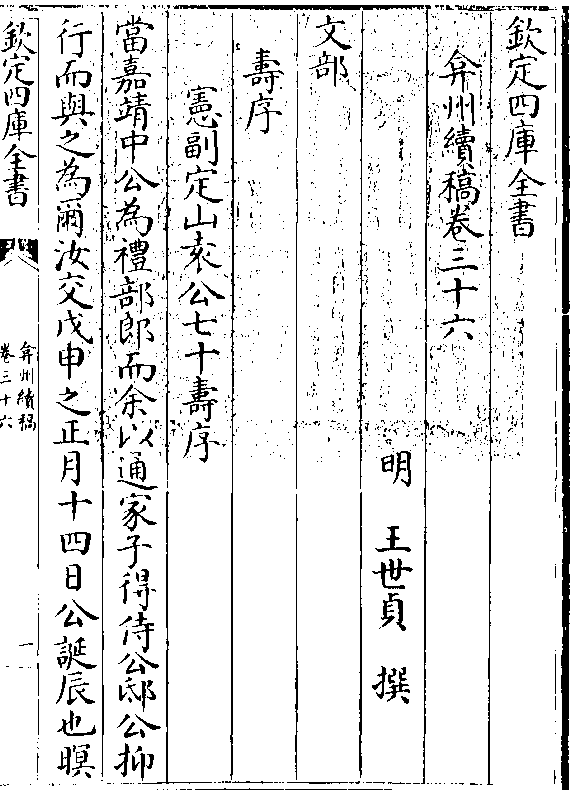 欽定四庫全書
弇州續稿卷三十六
明 王世貞 撰
文部
壽序
憲副定山袁公七十壽序
當嘉靖中公為禮部郎而余以通家子得侍公邸公抑
行而與之為爾汝交戊申之正月十四日公誕辰也暝
欽定四庫全書
弇州續稿
卷三十六
一